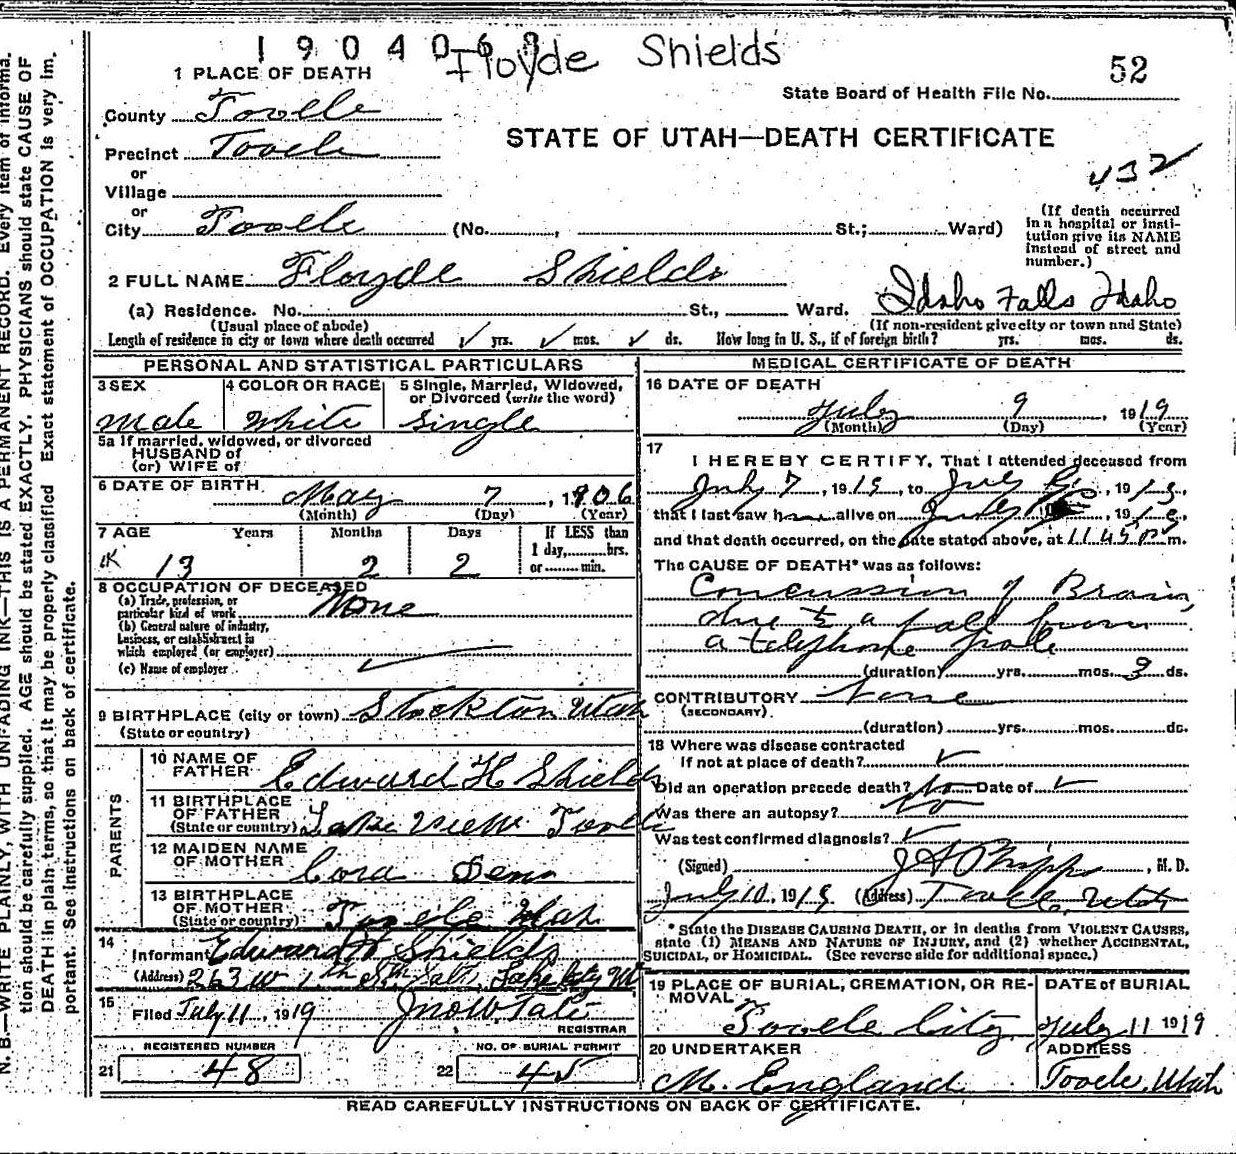 N. B.—WRITE PLAINLY, WITH UNFADING INK—THIS IS A PERMANENT RECORD. Every item of informa-
tion should be carefully supplied. AGE should be stated EXACTLY. PHYSICIANS should state CAUSE OF
DEATH in plain terms, so that it may be properly classified. Exact statement of OCCUPATION is very im-
portant. See instructions on back of certificate.
190406
Floyde Shields
52
State Board of Health File No.
STATE OF UTAH—DEATH CERTIFICATE
432
1 PLACE OF DEATH
County Tooele
Precinct Tooele
or
Village
or
City Tooele (No. , St.; Ward)
(If death occurred
in a hospital or insti-
tution give its NAME
instead of street and
number.)
2 FULL NAME Floyde Shields
(a) Residence. No. St., Ward. Idaho Falls Idaho
(Usual place of abode) (If non-resident give city or town and State)
Length of residence in city or town where death occurred ✓ yrs. ✓ mos. ✓ ds. How long in U. S., if of foreign birth? yrs. mos. ds.
PERSONAL AND STATISTICAL PARTICULARS
3 SEX
Male
4 COLOR OR RACE
White
5 Single, Married, Widowed,
or Divorced (write the word)
Single
5a If married, widowed, or divorced
HUSBAND of
(or) WIFE of
6 DATE OF BIRTH May 7, 1906
(Month) (Day) (Year)
7 AGE Years Months Days If LESS than
1 day, hrs.
or min.
13 2 2
8 OCCUPATION OF DECEASED
(a) Trade, profession, or
particular kind of work None
(b) General nature of industry,
business, or establishment in
which employed (or employer)
(c) Name of employer
9 BIRTHPLACE (city or town) Stockton Utah
(State or country)
PARENTS
10 NAME OF
FATHER Edward H Shields
11 BIRTHPLACE
OF FATHER
(State or country) Lake View Tooele
12 MAIDEN NAME
OF MOTHER Cora
13 BIRTHPLACE
OF MOTHER
(State or country) Tooele Utah
14
Informant Edward H Shields
(Address) 263 W 1th Salt Lake City
15
Filed July 11, 1919 Jno W. Tate
REGISTRAR
REGISTERED NUMBER
21 48
NO. OF BURIAL PERMIT
22 45
MEDICAL CERTIFICATE OF DEATH
16 DATE OF DEATH
July 9, 1919
(Month) (Day) (Year)
17
I HEREBY CERTIFY, That I attended deceased from
July 7, 1919, to July , 1919,
that I last saw h alive on July , 191
and that death occurred, on the date stated above, at 11.45 P m.
The CAUSE OF DEATH* was as follows:
Concussion of Brain,
due to a fall from
a telephone pole
(duration) yrs. mos. 3 ds.
CONTRIBUTORY None
(SECONDARY)
(duration) yrs. mos. ds.
18 Where was disease contracted
If not at place of death? ✓
Did an operation precede death? No Date of ✓
Was there an autopsy? No
Was test confirmed diagnosis? ✓
(Signed) J A Phipps, M. D.
July 10, 1919 (Address) Tooele, Utah
*State the DISEASE CAUSING DEATH, or in deaths from VIOLENT CAUSES,
state (1) MEANS AND NATURE OF INJURY, and (2) whether ACCIDENTAL,
SUICIDAL, or HOMICIDAL. (See reverse side for additional space.)
19 PLACE OF BURIAL, CREMATION, OR RE-
MOVAL
Tooele City
DATE of BURIAL
July 11 1919
20 UNDERTAKER
M. England
ADDRESS
Tooele, Utah
READ CAREFULLY INSTRUCTIONS ON BACK OF CERTIFICATE.